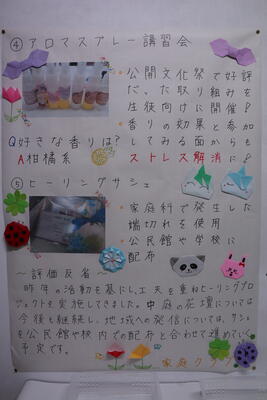 ④アロマスプレー講習会
・公開文化祭で好評
だった取り組みを
生徒向けに開催!
・香りの効果と参加
してみる面からも
ストレス解消に!
Q好きな香りは?
A柑橘系
⑤ヒーリングサシェ
・家庭科で発生した
端切れを使用
・公民館や学校に
配布
～評価反省～
昨年の活動を基にし、工夫を重ねヒーリングプロ
ジェクトを実施してきました。中庭の花壇については
今後も継続し、地域への発信については、サシェ
を公民館や校内での配布と合わせて進めていく
予定です。
家庭クラブ